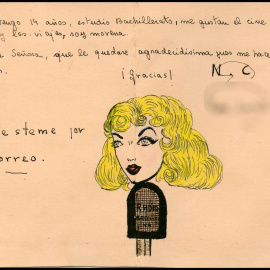 tengo 14 años, estudio Bachillerato, me gustan el cine
y los viajes, soy morena.
Señora, que le quedaré agradecidísima pues me hace
¡Gracias!
N. C
steme por
orreo.